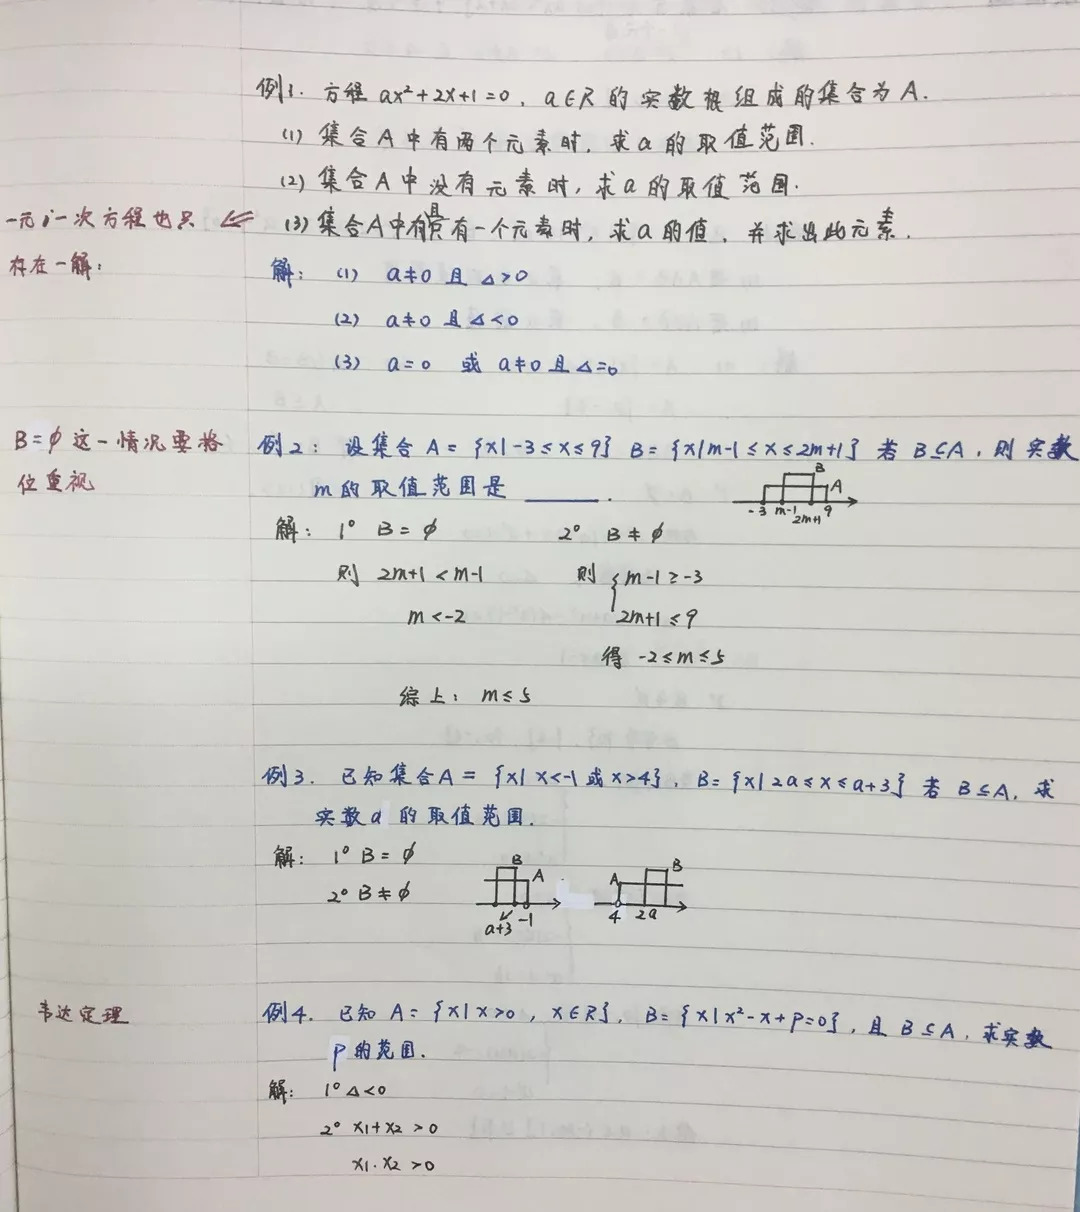 例1. 方程 ax²+2x+1=0, a∈R 的实数根组成的集合为A.
(1) 集合A中有两个元素时, 求a的取值范围.
(2) 集合A中没有元素时, 求a的取值范围.
一元一次方程也只 ⇐ (3) 集合A中有且只有一个元素时, 求a的值, 并求出此元素.
存在一解;
解: (1) a≠0 且 △>0
(2) a≠0 且 △<0
(3) a=0 或 a≠0 且 △=0
B=∅ 这一情况要格
位重视
例2: 设集合 A={x|-3≤x≤9} B={x|m-1≤x≤2m+1} 若 B⊆A, 则实数
m的取值范围是 ______.
B
A
-3 m-1 2m+1 9
解: 1° B=∅ 2° B≠∅
则 2m+1<m-1 则 { m-1≥-3
m<-2 2m+1≤9
得 -2≤m≤5
综上: m≤5
例3. 已知集合A={x|x<-1或x>4}, B={x|2a≤x≤a+3} 若 B⊆A, 求
实数a的取值范围.
解: 1° B=∅
2° B≠∅
B
A
a+3 -1
A B
4 2a
韦达定理
例4. 已知 A={x|x>0, x∈R}, B={x|x²-x+p=0}, 且 B⊆A, 求实数
p的范围.
解: 1° △<0
2° x₁+x₂>0
x₁·x₂>0